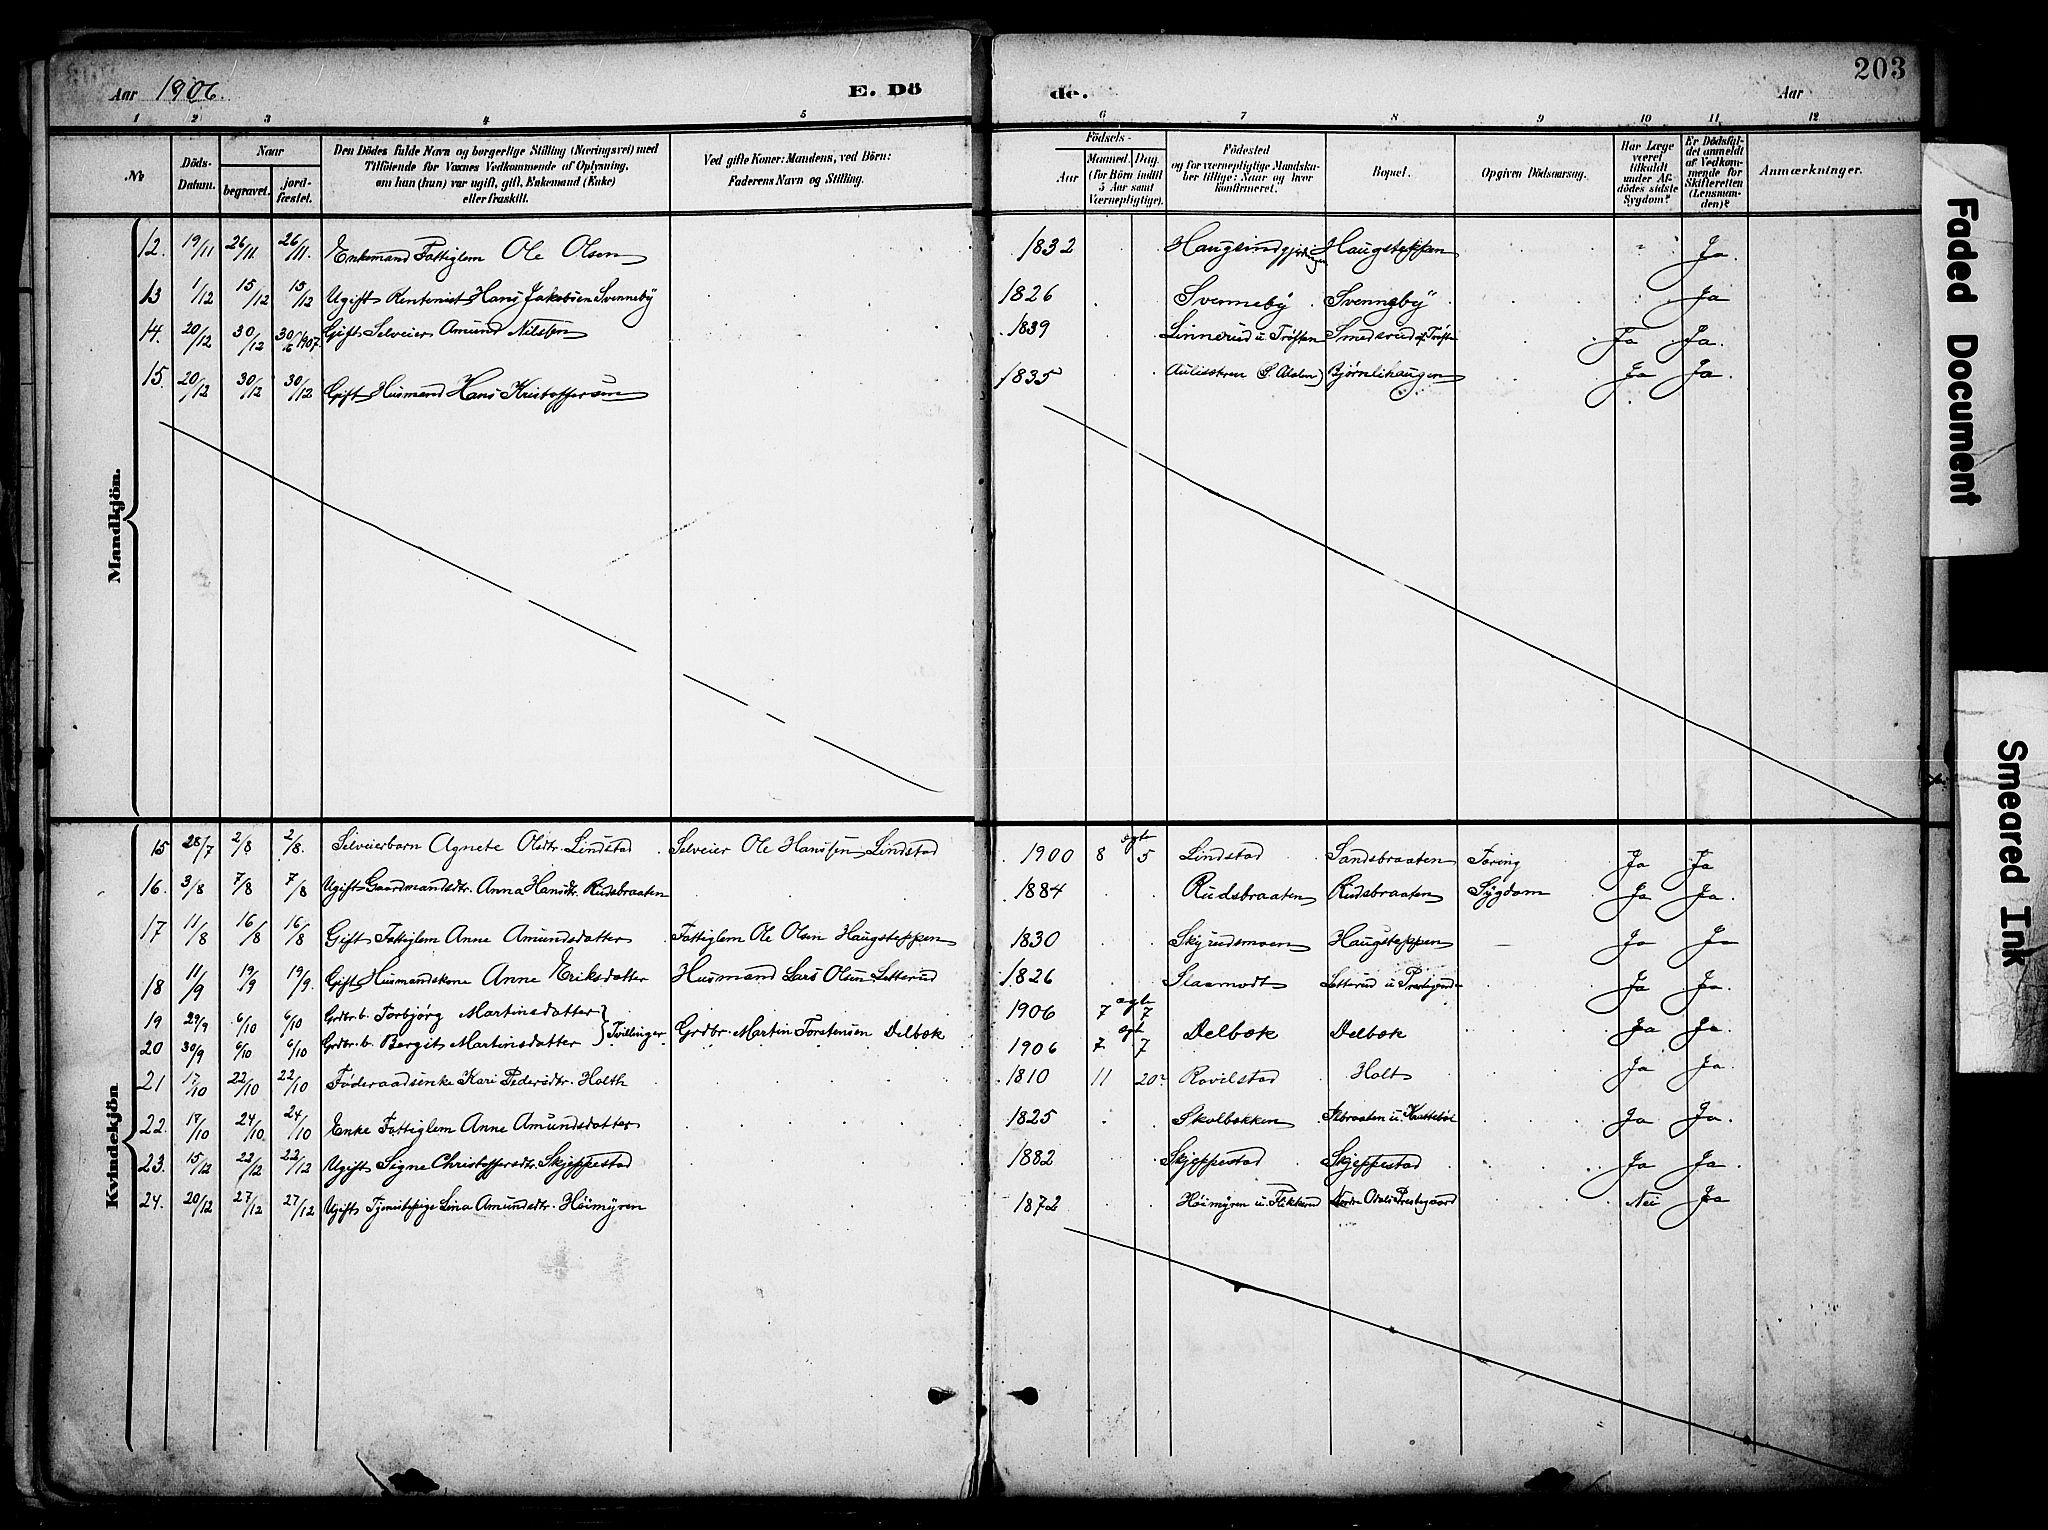 203
Aar 1906. E. Dö de. Aar
1 2 3 4 5 6 7 8 9 10 11 12
№ Döds-Datum. Naar begravet. jordfæstet. Den Dödes fulde Navn og borgerlige Stilling (Næringsvei) med Tilföiende for Voxnes Vedkommende af Oplysning, om han (hun) var ugift, gift, Enkemand (Enke) eller fraskilt. Ved gifte Koner: Mandens, ved Börn: Faderens Navn og Stilling. Födsels- Aar Maaned. Dag. (for Börn indtil 5 Aar samt Værnepligtige). Födested og for værnepligtige Mandskaber tillige: Naar og hvor konfirmeret. Bopæl. Opgiven Dödsaarsag. Har Læge været tilkaldt under Afdödes sidste Sygdom? Er Dödsfaldet anmeldt af Vedkommende for Skifteretten (Lensmanden)? Anmærkninger.
Mandkjön.
12. 19/11 26/11 26/11. Enkemand Fattiglem Ole Olsen 1832 Haugsrud Haugsteppen " Ja.
13 1/12 15/12 15/12 Ugift Rentenist Hans Jakobsen Svenneby 1826 Svenneby Svenneby Ja
14. 20/12 30/12 30/6 1907. Gift Selveier Amund Nilsen 1839 Linnerud u. Trøften Smedsrud af Trøften Ja Ja.
15. 20/12 30/12 30/12 Gift Husmand Hans Kristoffersen 1835 Bjørnlihaugen Ja Ja.
Kvindekjön
15 28/7 2/8 2/8. Selveierbarn Agnete Olsdtr. Lindstad Selveier Ole Hanssen Lindstad 1900 8 egte 5 Lindstad Sandsbraaten Tæring Ja Ja
16. 3/8 7/8 7/8 Ugift Gaardmandsdtr. Anna Hansdtr. Rudsbraaten 1884 Rudsbraaten Rudsbraaten Sygdom Ja Ja.
17 11/8 16/8 16/8 Gift Fattiglem Anne Amundsdatter Fattiglem Ole Olsen Haugsteppen 1830 Skyrudsmoen Haugsteppen Ja Ja
18 11/9 19/9 19/9. Gift Husmandskone Anne Eriksdatter Husmand Lars Olsen Letterud 1826 Slaamodt Letterud u Prestegrd Ja Ja.
19 29/9 6/10 6/10 Grdbr. b. Torbjørg Martinsdatter } Tvillinger Grdbr. Martin Torstensen Delbæk 1906 7 egte 7 Delbæk Delbæk Ja Ja.
20 30/9 6/10 6/10 Grdbr. b. Bergit Martinsdatter 1906 7 egt 7
21 17/10 22/10 22/10 Føderaadsenke Kari Pedersdtr. Holth 1810 11 20 Rovilstad Holt Ja Ja.
22. 17/10 24/10 24/10 Enke Fattiglem Anne Amundsdatter 1825 Skolbækken Ja Ja.
23. 15/12 22/12 22/12 Ugift Signe Christoffersdtr. Skjeppestad 1882 Skjeppestad Skjeppestad Ja Ja.
24. 20/12 27/12 27/12 Ugift Tjenestepige Lina Amundsdtr. Høimyren 1872 Høimyren u. Flikkerud Nordre Odals Prestegaard Nei Ja
Faded Document
Smeared Ink